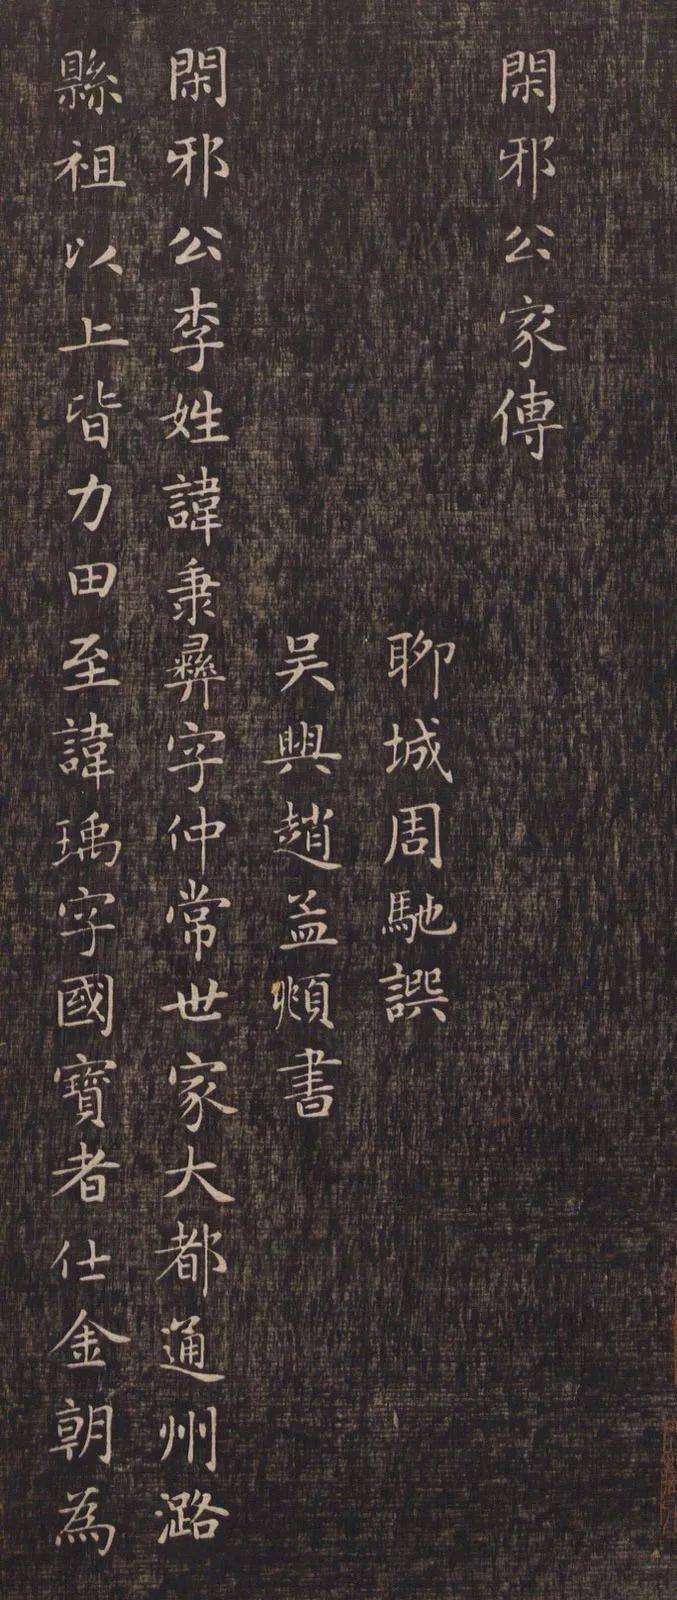 閑邪公家傳
聊城周馳譔
吴興趙孟頫書
閑邪公李姓諱秉彝字仲常世家大都通州潞
縣祖以上皆力田至諱瑀字國寳者仕金朝為